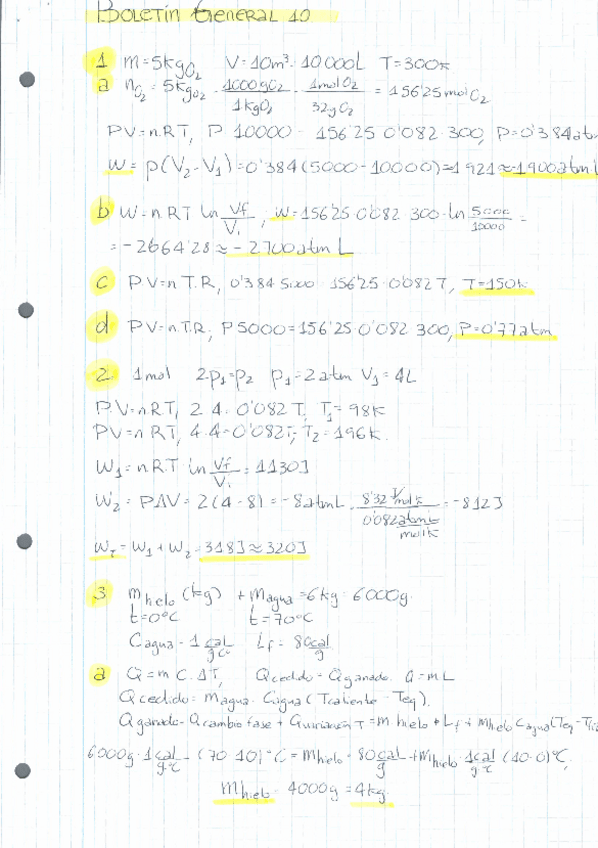 BOLETÍN GENERAL 10
1 m=5kgO2 V=10m³=10000L T=300k
a nO2=5kgO2 · 1000gO2/1kgO2 · 1molO2/32gO2 = 156'25molO2
PV=nRT, P·10000=156'25·0'082·300, P=0'384atm
W=p(V2-V1)=0'384(5000-10000)=1921≈-1900atmL
b W=nRT ln Vf/Vi, W=156'25·0'082·300·ln 5000/10000 =
=-2664'28≈-2700atm L
c PV=nT.R, 0'384·5000=156'25·0'082T, T=150k
d PV=nT.R, P5000=156'25·0'082·300, P=0'77atm
2 1mol 2p1=p2 p1=2atm V1=4L
P.V=nRT, 2·4=0'082T, T1=98k
PV=nRT, 4·4=0'082T, T2=196k
W1=nRT ln Vf/Vi=1130J
W2=PΔV=2(4-8)=-8atmL · 8'32 J/molk / 0'082 atmL/molk =-812J
WT=W1+W2=318J≈320J
3 mhielo(kg) + magua=6kg=6000g
t=0ºC t=70ºC
Cagua=1 cal/gºC Lf=80 cal/g
a Q=m·C·ΔT, Qcedido=Qganado Q=mL
Qcedido=magua·Cagua(Tcaliente-Teq).
Qganado=Qcambio fase+Qvariación T=m hielo+Lf+mhielo Cagua(Teq-
6000g·1cal/gºC·(70-10)ºC=mhielo·80cal/g+mhielo·1cal/gºC(10-0)ºC,
mhielo=4000g=4kg.